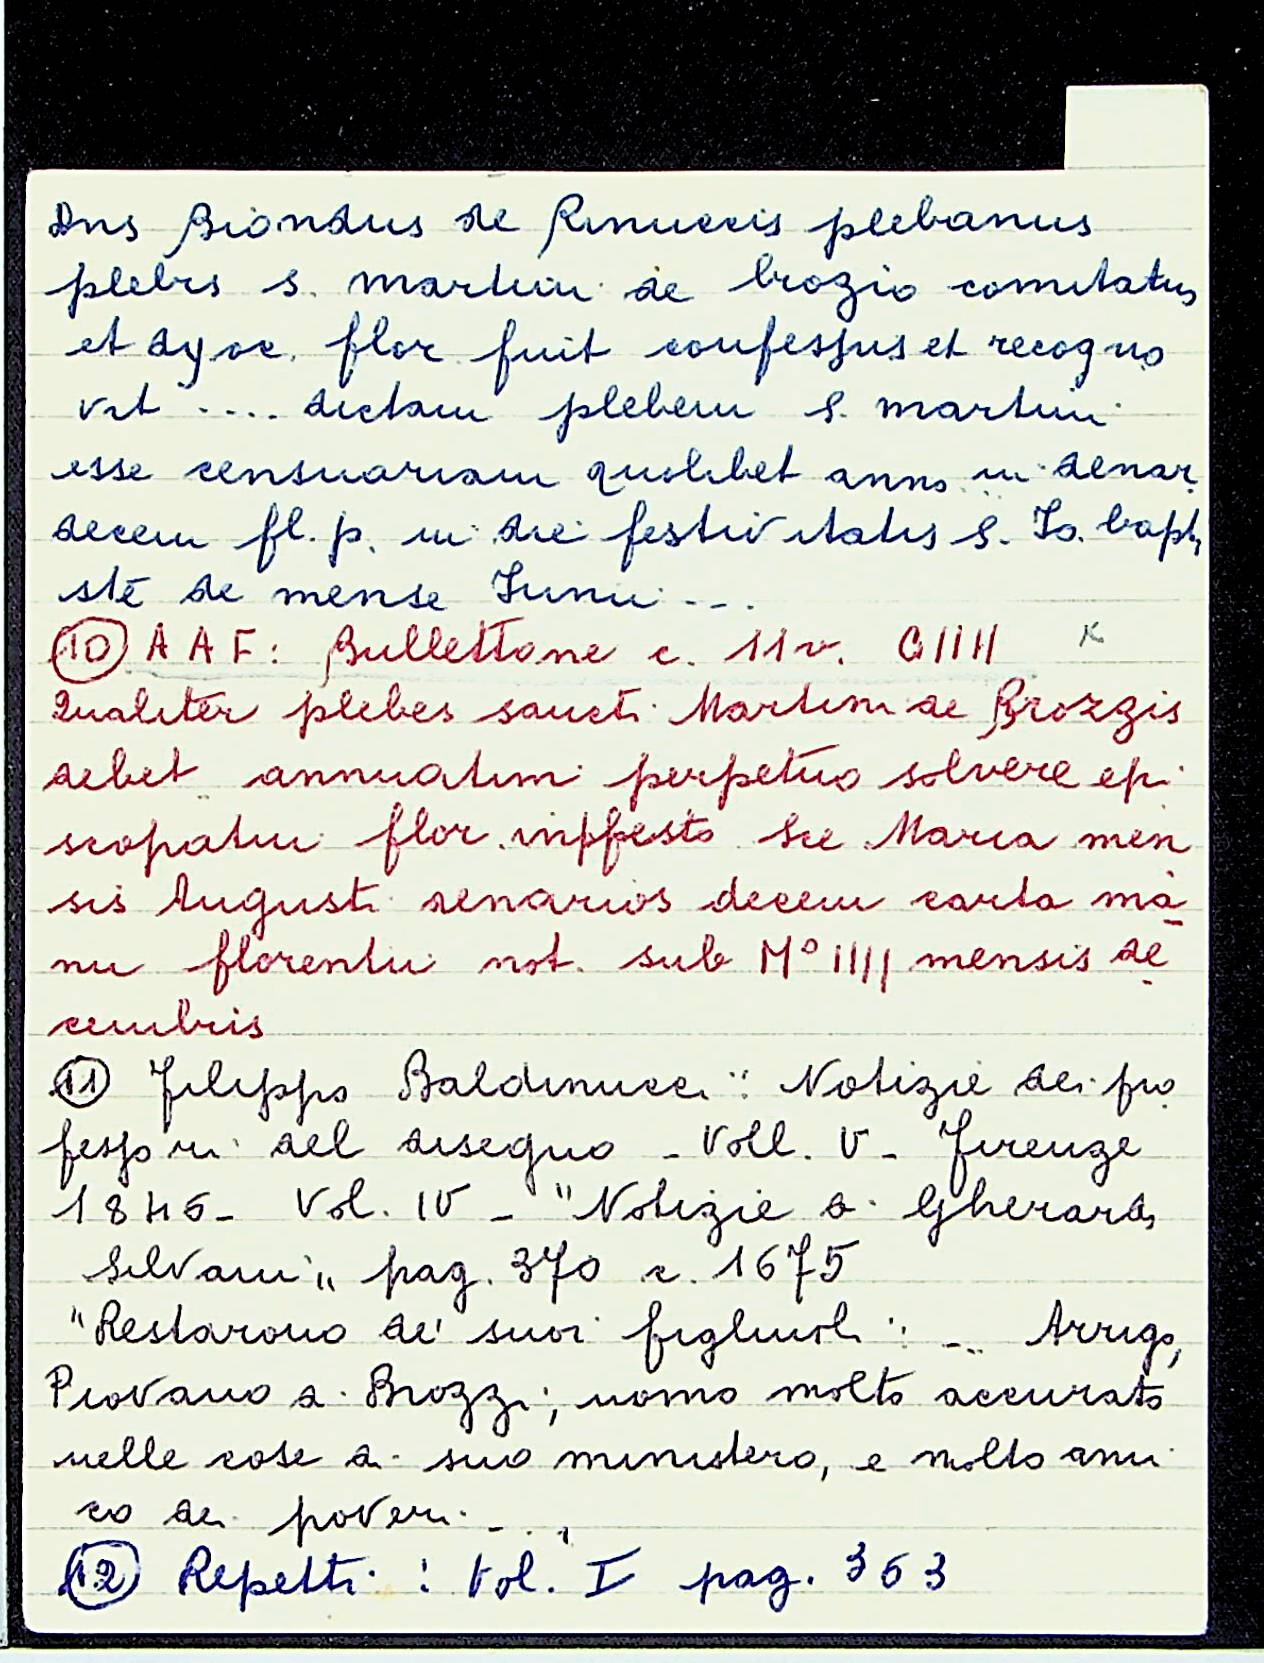 Dns Biondus de Rinuccis plebanus
plebis s. martini de brozio comitatus
et dyoc. flor fuit confessus et recogno
vit .... dictam plebem S. martini
esse censuariam quolibet anno in denar
decem fl. p. in die festivitatis S. Jo. bapti
ste de mense Junii ...
10 AAF: Bullettone c. 11v. K
Qualiter plebes sancti Martini de Brozzis
debet annuatim perpetuo solvere epi
scopatui flor. in festo Sce Maria men
sis Augusti denarios decem carta ma
nu florentii not. sub M° IIII mensis de
cembris
11 Filippo Baldinucci: Notizie dei pro
fessori del disegno - Voll. V - Firenze
1846 - Vol. IV - "Notizie di Gherardo
Silvani" pag. 370 c. 1675
"Restarono de' suoi figliuoli: ... Arrigo,
Piovano a Brozzi; uomo molto accurato
nelle cose di suo ministero, e molto ami
co dei poveri ...
12 Repetti: Vol. I pag. 363